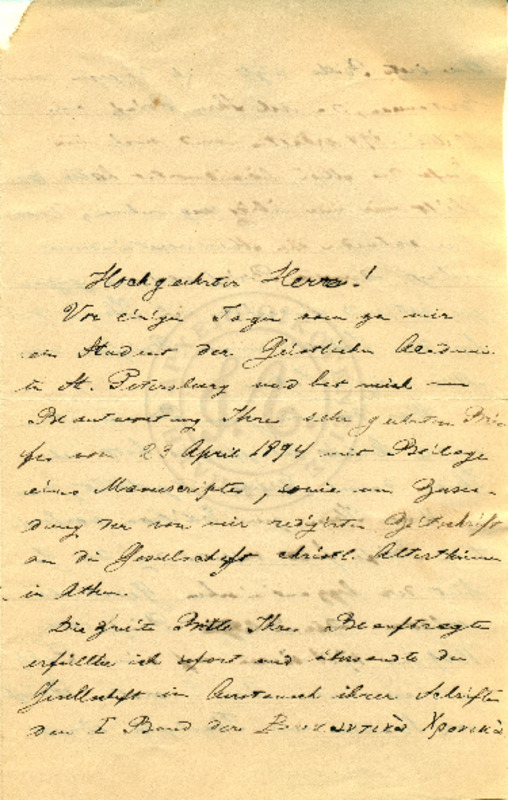 Hochgeehrter Herr!
Vor einigen Tagen kam zu mir
ein Student der Geistlichen Academie
in St. Petersburg und bat mich um
Beantwortung Ihres sehr geehrten Brie-
fes vom 23 April 1894 mit Beilage
eines Manuscriptes, sowie um Zusen-
dung der von mir redigirten Zeitschrift
an die Gesellschaft christl. Alterthümer
in Athen.
Die zweite Bitte Ihres Beauftragten
erfüllte ich sofort und übersandte der
Gesellschaft im Austausch ihrer Schriften
den I Band der Βυζαντινὰ Χρονικὰ